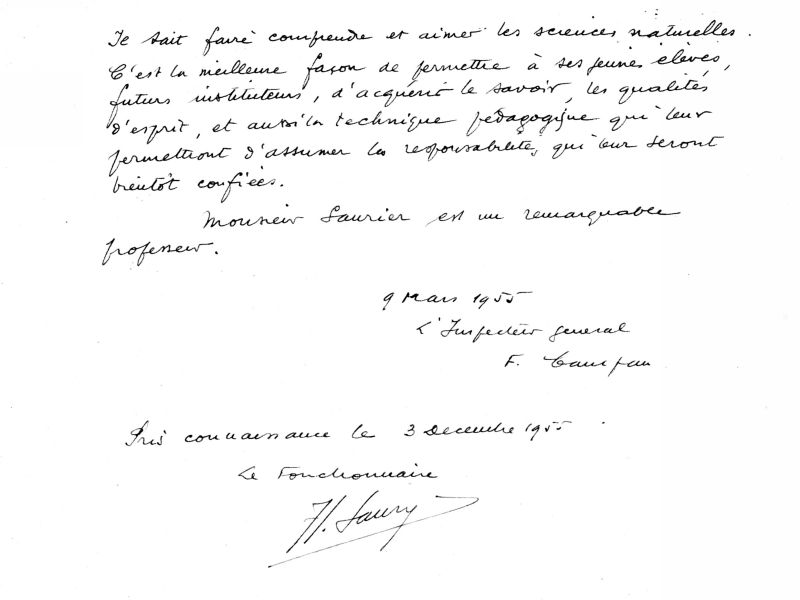 Il sait faire comprendre et aimer les sciences naturelles.
C'est la meilleure façon de permettre à ses jeunes élèves,
futurs instituteurs, d'acquérir le savoir, les qualités
d'esprit, et aussi la technique pédagogique qui leur
permettront d'assumer les responsabilités, qui leur seront
bientôt confiées.
Monsieur Saurier est un remarquable
professeur.
9 Mars 1955
L'Inspecteur general
F.
Pris connaissance le 3 Decembre 1955
Le Fonctionnaire